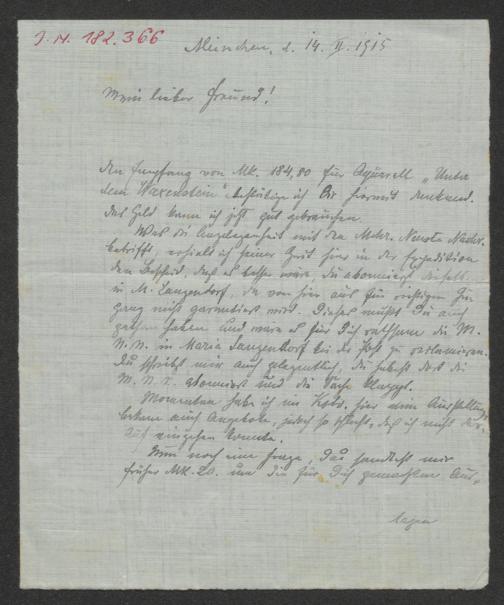 J. N. 182.366
München, d. 14. II. 1915
Mein lieber Freund!
Den Empfang von Mk. 184,80 für Aquarell „Unter
dem Waxenstein" bestätige ich Dir hiermit dankend.
Das Geld kann ich jetzt gut gebrauchen.
Was die Angelegenheit mit den Mchr. Neueste Nachr.
betrifft, erhielt ich seiner Zeit hier in der Expedition
den Bescheid, daß es besser wäre, Du abonnierst dieselb.
in M. Lanzendorf, da von hier aus für richtigen Ein
gang nicht garantiert wird. Dieses mußt Du auch
gethan haben und wäre es für Dich ratsam die M.
N. N. in Maria Lanzendorf bei der Post zu reclamieren.
Du schriebst mir auch gelegentlich, Du habest dort die
M. N. N. abonniert und die Sache klappt.
Momentan habe ich im Kstv. hier eine Ausstellung,
bekam auch Angebote, jedoch so schlecht, daß ich nicht dar-
auf eingehen konnte.
Nun noch eine Frage, Du sandtest mir
früher Mk. 20. um die für Dich gemachten Aus-
lagen